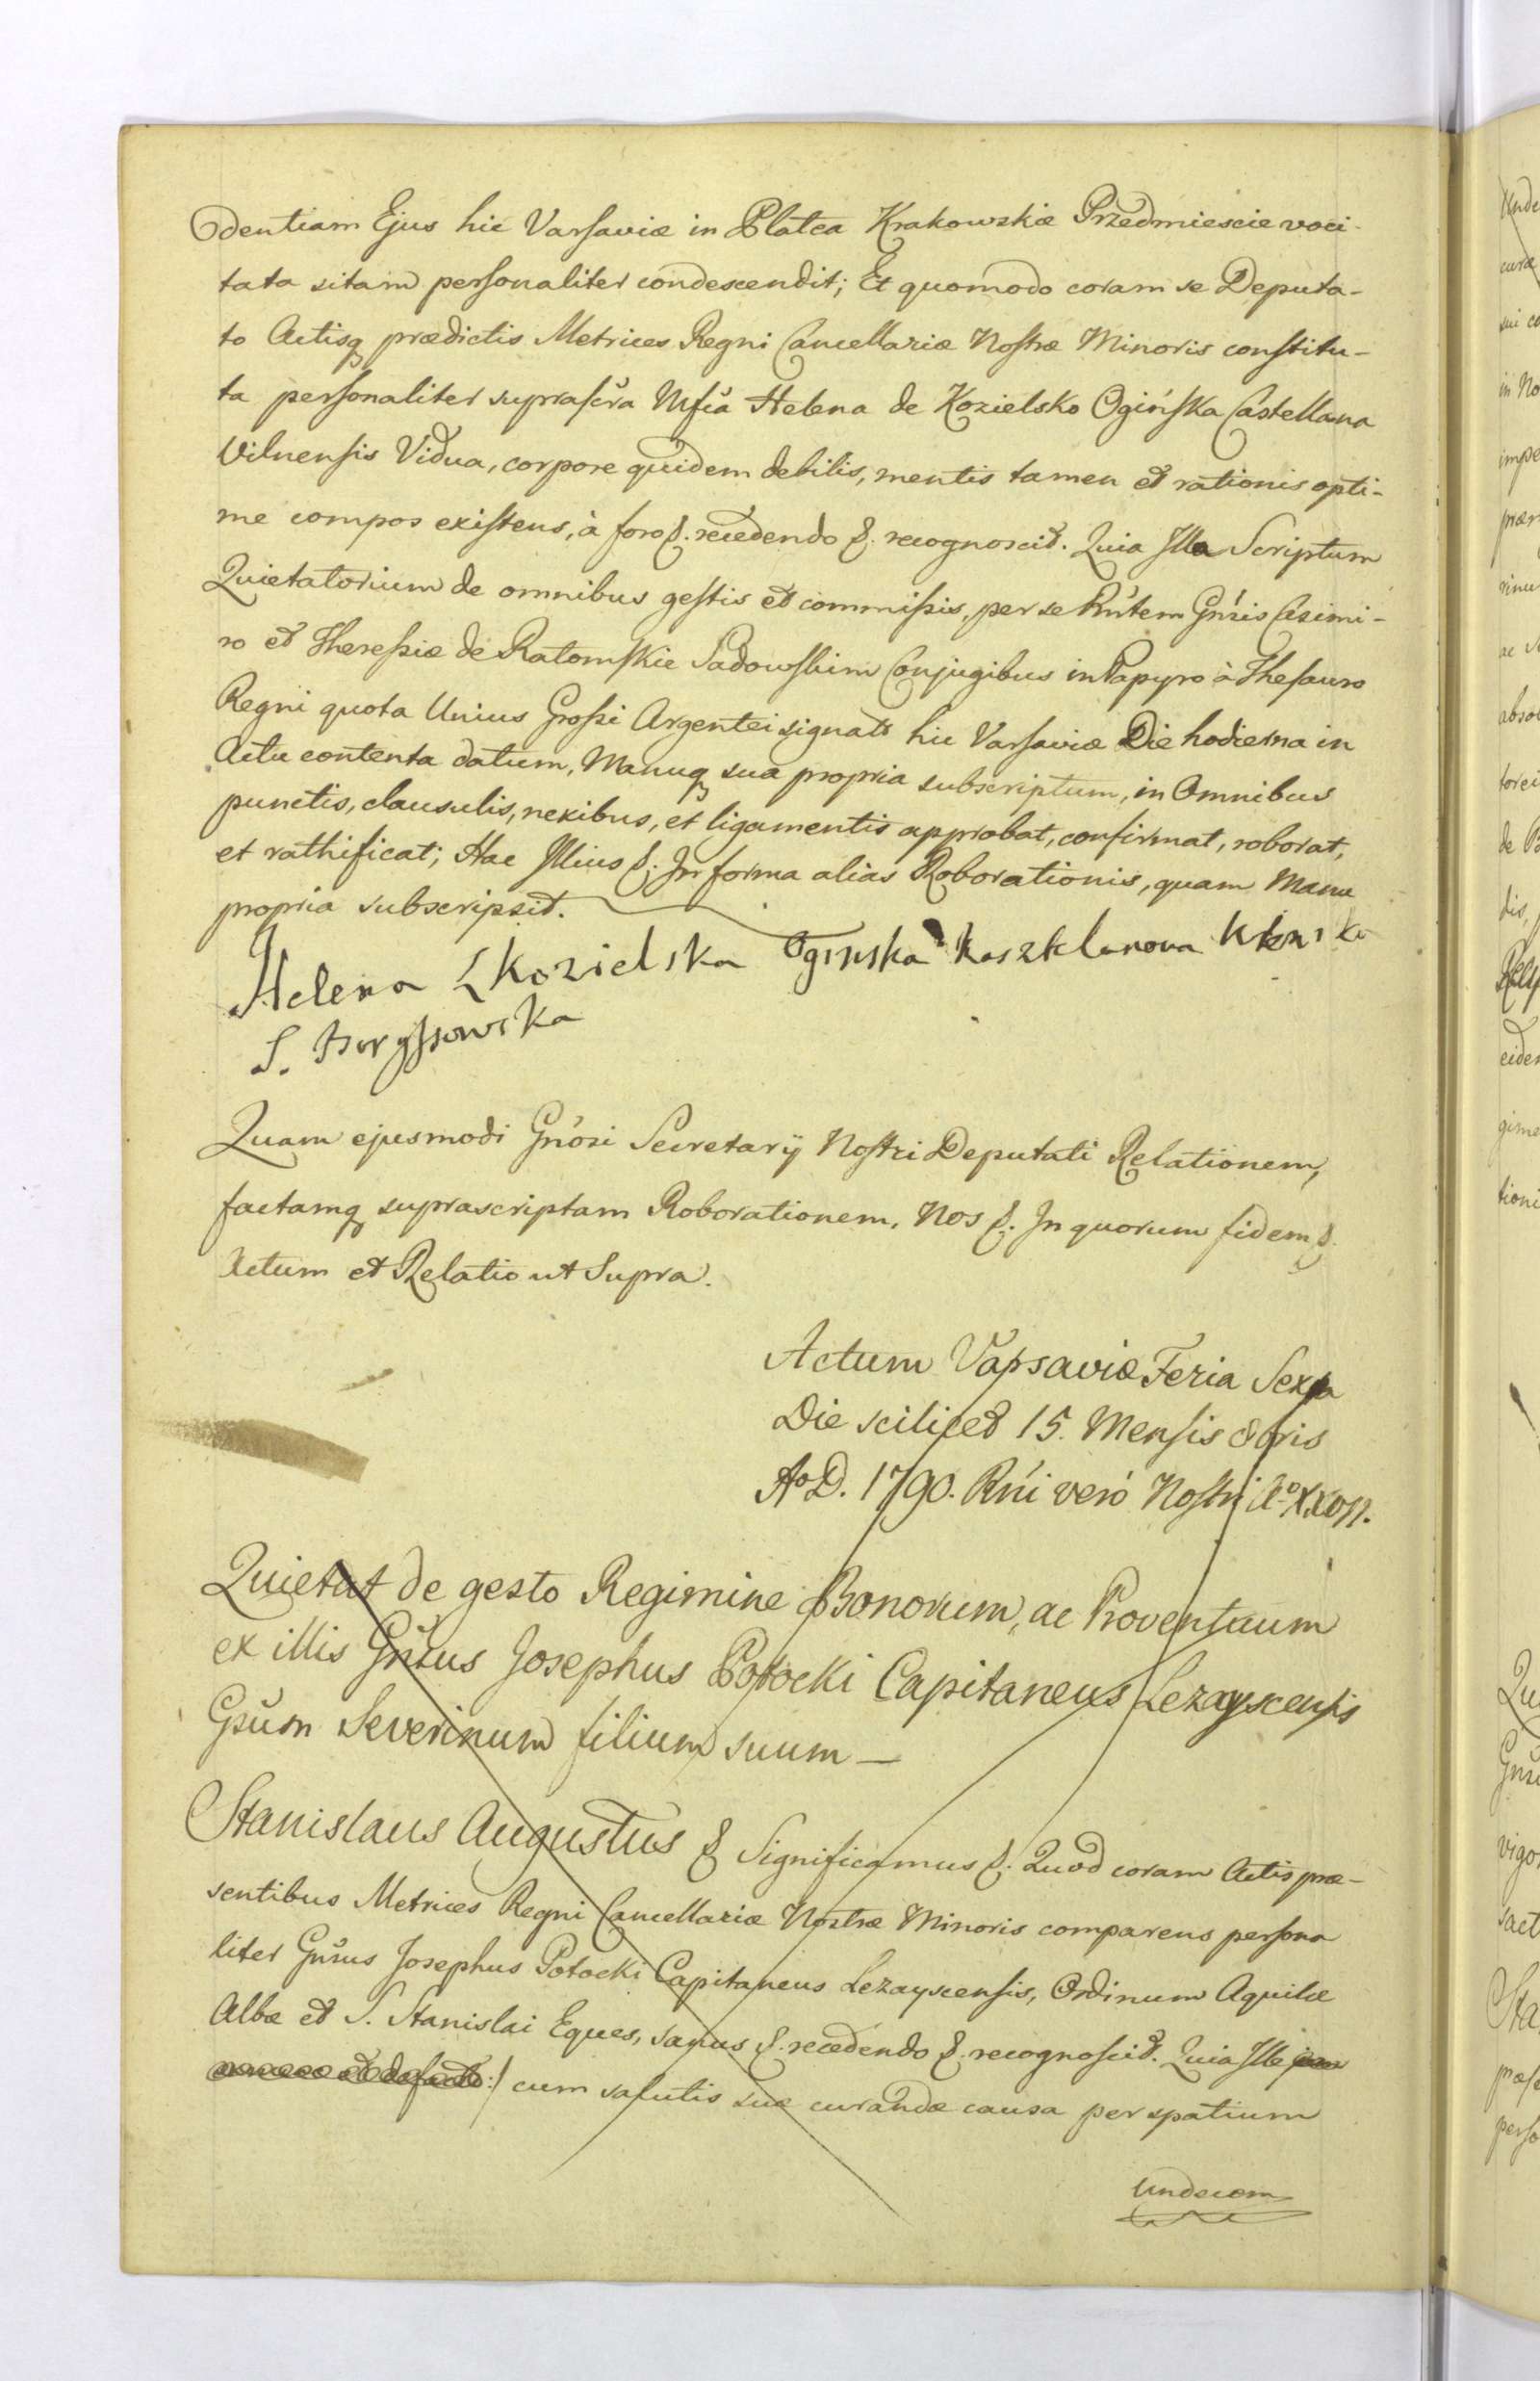 dentiam Ejus hic Varsaviæ in Platea Krakowskie Przedmiescie voci-
tata sitam personaliter condescendit; Et quomodo coram se Deputa-
to Actisq prædictis Metrices Regni Cancellariæ Nostræ Minoris constitu-
ta personaliter suprascr̃a Mfca Helena de Kozielsko Ogińska Castellana
Vilnensis Vidua, corpore quidem debilis, mentis tamen et rationis opti-
me compos existens, à foro &. recedendo &. recognoscit. Quia Illa Scriptum
Quietatorium de omnibus gestis et commissis, per se Rńtem Gńsis Casimi-
ro et Theressiæ de Ratomskie Sadowskim Conjugibus in Papyro à Thesauro
Regni quota Unius Grossi Argentei signato hic Varsaviæ Die hodierna in
Actu contenta datum, Manuq sua propria subscriptum, in Omnibus
punctis, clausulis, nexibus, et ligamentis approbat, confirmat, roborat,
et rathificat; Hac Illius &. In forma alias Roborationis, quam Manu
propria subscripsit.
Helena Kozielska Oginska Kasztelanowa
S.
Quam ejusmodi Gńosi Secretarij Nostri Deputati Relationem,
factamq suprascriptam Roborationem, Nos &. In quorum fidem &.
Actum et Relatio ut Supra.
Actum Varsaviæ Feria Sexta
Die scilicet 15. Mensis 8bris
Ao D. 1790. Rńi veró Nostri Ao XXVII.
Quietat de gesto Regimine Bonorum, ac Proventuum
ex illis Gńsus Josephus Potocki Capitaneus Lezayscensis
Gsum Severinum filium suum —
Stanislaus Augustus & Significamus &. Quod coram Actis præ-
sentibus Metrices Regni Cancellariæ Nostræ Minoris comparens persona
liter Gnsus Josephus Potocki Capitaneus Lezayscensis, Ordinum Aquilæ
Albæ et S. Stanislai Eques, sanus &. recedendo &. recognoscit. Quia Ille
cum salutis suæ curandæ causa per spatium
undecem